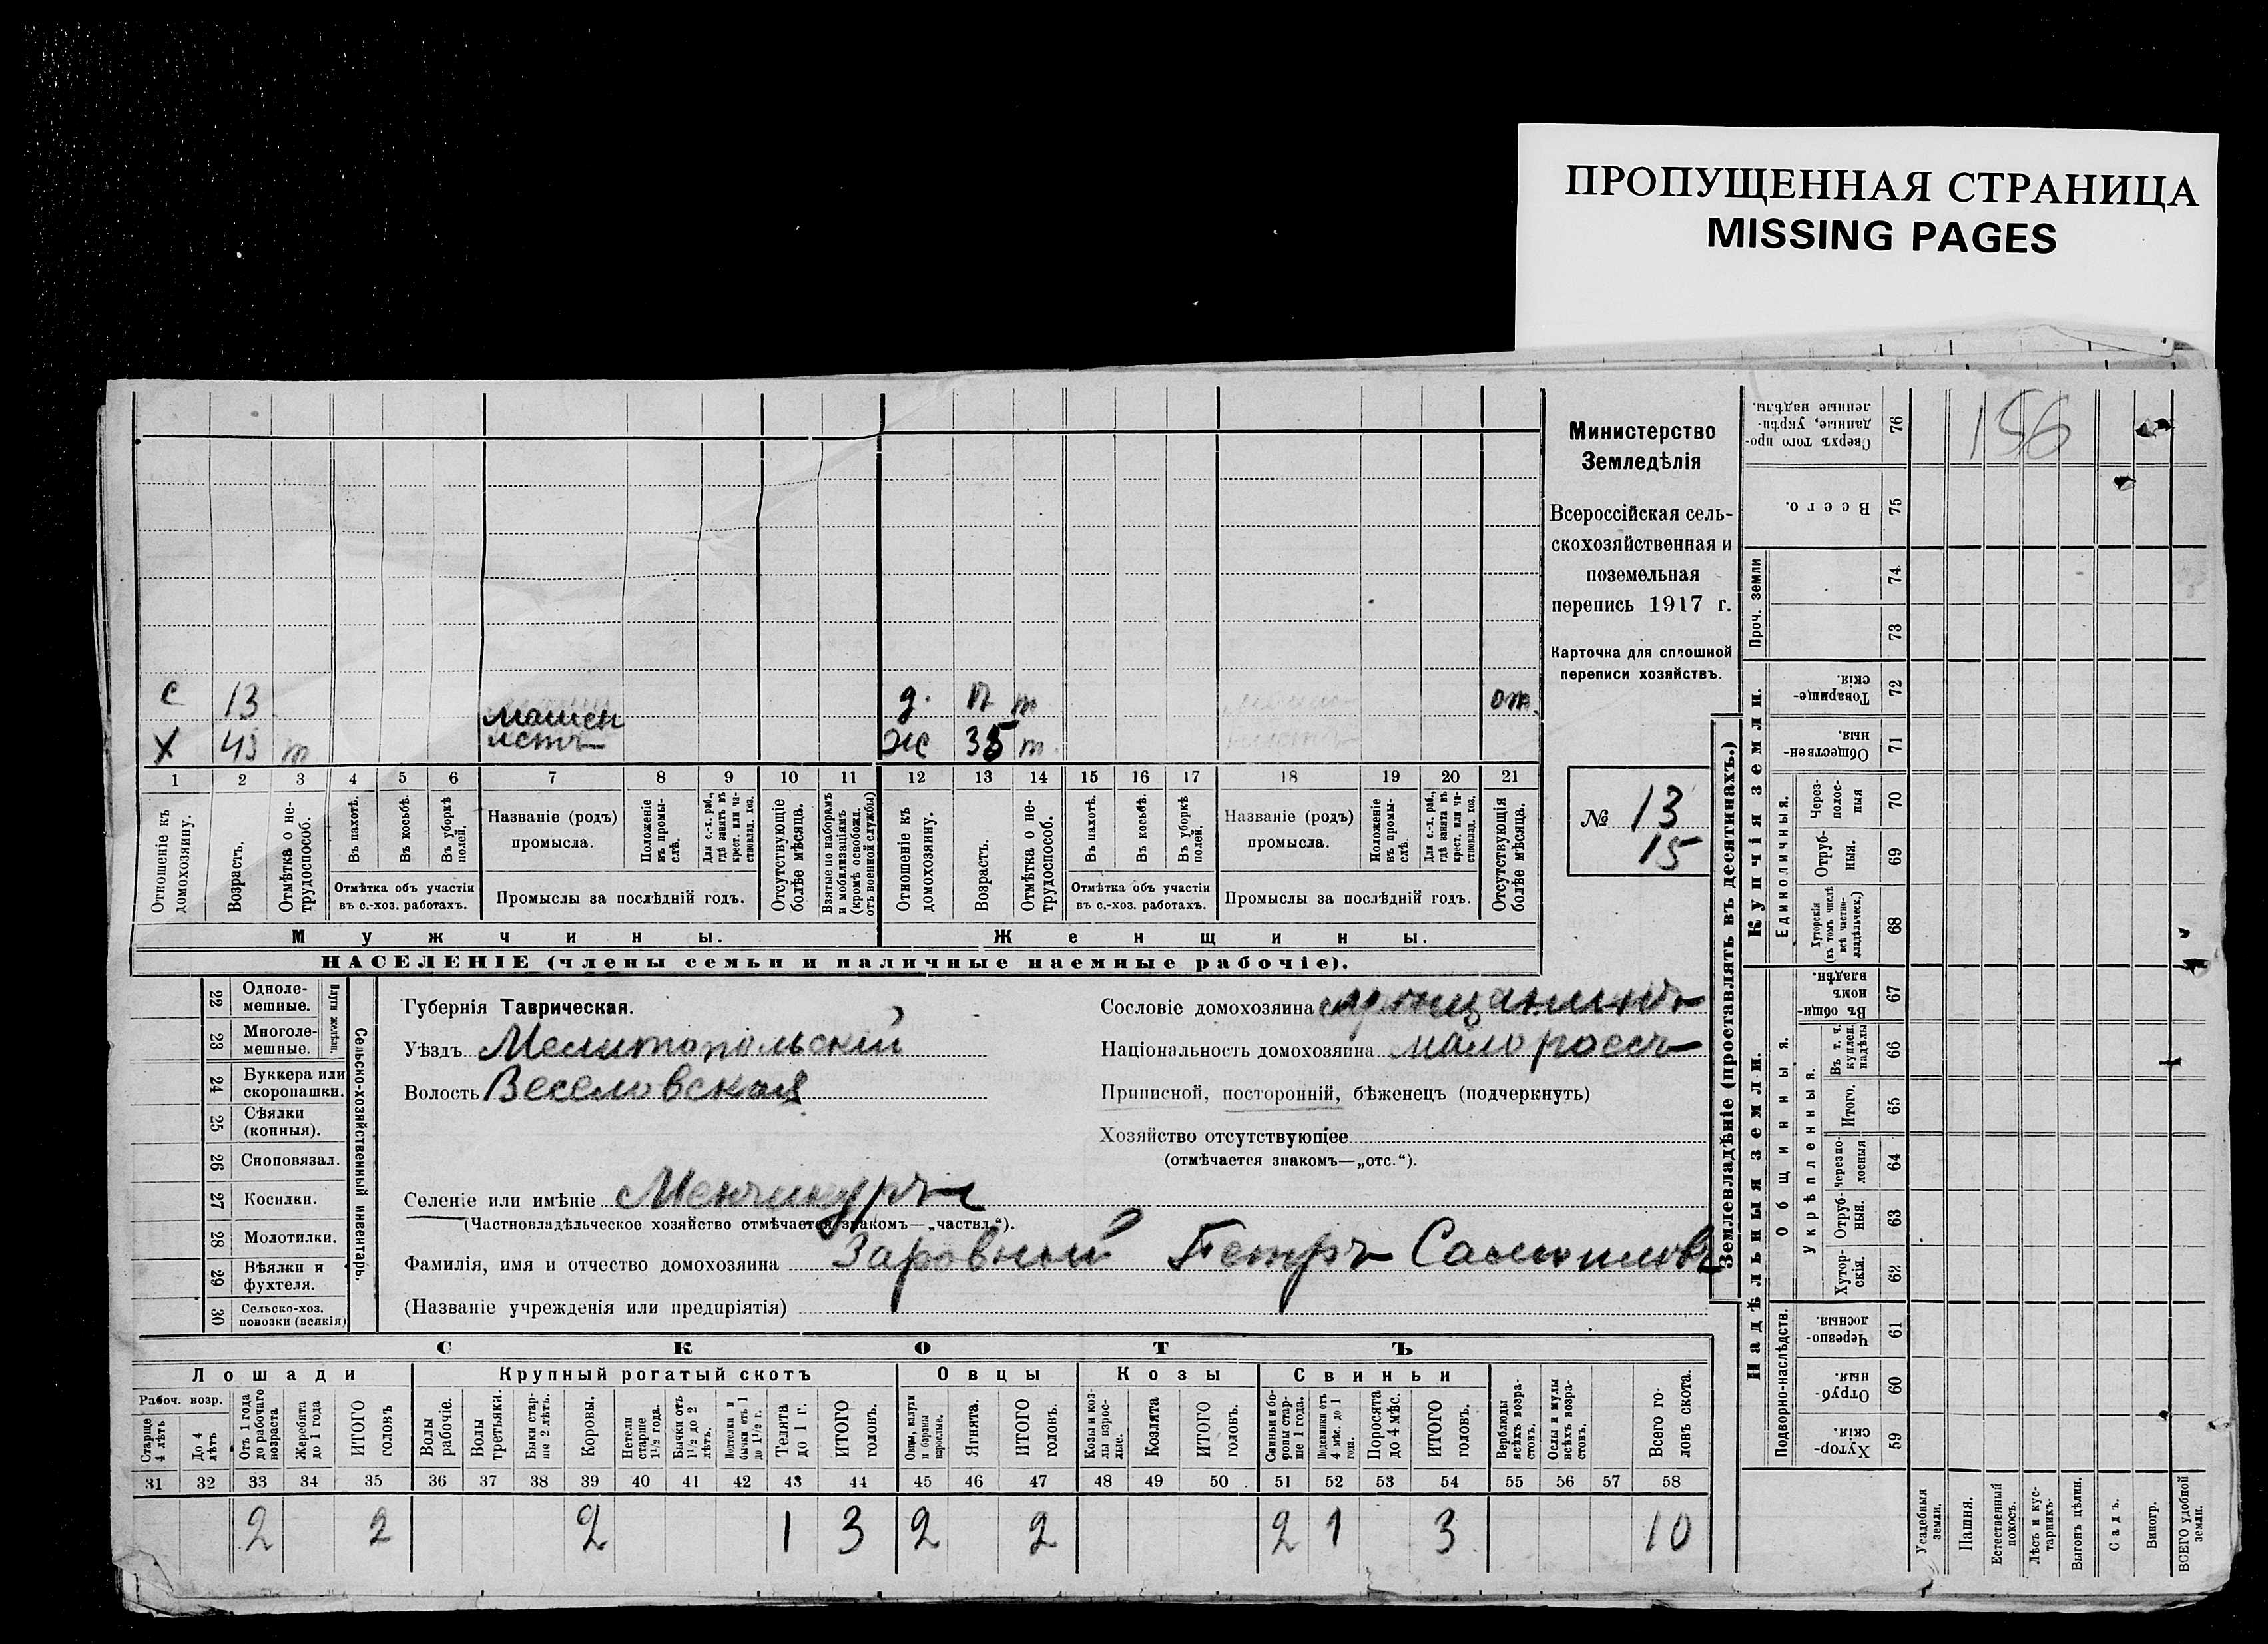 ПРОПУЩЕННАЯ СТРАНИЦА
MISSING PAGES
156
Министерство
Земледѣлія
Всероссійская сель-
скохозяйственная и
поземельная
перепись 1917 г.
Карточка для сплошной
переписи хозяйствъ.
№ 13
15
с 13 д. m от.
машен
истъ
х 43 m ж 35 m.
1 2 3 4 5 6 7 8 9 10 11 12 13 14 15 16 17 18 19 20 21
Отношеніе къ домохозяину.
Возрастъ.
Отмѣтка о не-трудоспособ.
Въ пахотѣ.
Въ косьбѣ.
Въ уборкѣ полей.
Отмѣтка объ участіи
въ с.-хоз. работахъ.
Названіе (родъ)
промысла.
Положеніе въ промы-слѣ.
Для с.-х. раб., гдѣ занятъ въ крест. или ча-стновлад. хоз.
Промыслы за послѣдній годъ.
Отсутствующіе болѣе мѣсяца.
Взятые по наборамъ и мобилизаціямъ (кромѣ освобожд. отъ военной службы)
Отношеніе къ домохозяину.
Возрастъ.
Отмѣтка о не-трудоспособ.
Въ пахотѣ.
Въ косьбѣ.
Въ уборкѣ полей.
Отмѣтка объ участіи
въ с.-хоз. работахъ.
Названіе (родъ)
промысла.
Положеніе въ промы-слѣ.
Для с.-х. раб., гдѣ занята въ крест. или ча-стновлад. хоз.
Промыслы за послѣдній годъ.
Отсутствующія болѣе мѣсяца.
Мужчины.
Женщины.
НАСЕЛЕНІЕ (члены семьи и наличные наемные рабочіе).
22 Одноле-мешные.
23 Многоле-мешные.
Плуги желѣзн.
24 Буккера или скоропашки.
25 Сѣялки (конныя).
26 Сноповязал.
27 Косилки.
28 Молотилки.
29 Вѣялки и фухтеля.
30 Сельско-хоз. повозки (всякія)
Сельско-хозяйственный инвентарь.
Губернія Таврическая.
Уѣздъ Мелитопольскій
Волость Веселовская
Селеніе или имѣніе Менчикуры
(Частновладѣльческое хозяйство отмѣчается знакомъ—„частвл.“).
Фамилія, имя и отчество домохозяина Заровный Петръ Самойловъ
(Названіе учрежденія или предпріятія)
Сословіе домохозяина
Національность домохозяина малороссъ
Приписной, посторонній, бѣженецъ (подчеркнуть)
Хозяйство отсутствующее
(отмѣчается знакомъ—„отс.“).
СКОТЪ
Лошади Крупный рогатый скотъ Овцы Козы Свиньи
Рабоч. возр.
Старше 4 лѣтъ
До 4 лѣтъ
Отъ 1 года до рабочаго возраста
Жеребята до 1 года
ИТОГО головъ
Волы рабочіе.
Волы третьяки.
Быки стар-ше 2 лѣтъ.
Коровы.
Нетели старше 1½ года.
Бычки отъ 1½ до 2 лѣтъ.
Подтелки и бычки отъ 1 до 1½ г.
Телята до 1 г.
ИТОГО головъ.
Овцы, валухи и бараны взрослые.
Ягнята.
ИТОГО головъ.
Козы и коз-лы взрос-лые.
Козлята
ИТОГО головъ.
Свиньи и бо-ровы стар-ше 1 года.
Подсвинки отъ 4 мѣс. до 1 года.
Поросята до 4 мѣс.
ИТОГО головъ.
Верблюды всѣхъ возра-стовъ.
Ослы и мулы всѣхъ возра-стовъ.
Всего го-ловъ скота.
31 32 33 34 35 36 37 38 39 40 41 42 43 44 45 46 47 48 49 50 51 52 53 54 55 56 57 58
2 2 2 1 3 2 2 2 1 3 10
Землевладѣніе (проставлять въ десятинахъ.)
Купчія земли.
Надѣльныя земли.
76 Сверхъ того про-данные, укрѣп-ленные надѣлы.
75 Всего.
Проч. земли
74
73
72 Товарище-скія.
71 Обществен-ныя.
Единоличныя.
70 Через-полос-ныя
69 Отруб-ныя.
68 Хуторскія (въ томъ числѣ всѣ частно-владѣльческ.)
Общинныя.
67 Въ общин-номъ владѣн.
Укрѣпленныя.
66 Въ т. ч. куплен. надѣлы
65 Итого.
64 Черезпо-лосныя
63 Отруб-ныя.
62 Хутор-скія.
Подворно-наслѣдств.
61 Черезпо-лосныя.
60 Отруб-ныя.
59 Хутор-скія.
Усадебныя земли.
Пашня.
Естественный покосъ.
Лѣсъ и кус-тарникъ.
Выгонъ цѣлин.
Садъ.
Виногр.
ВСЕГО удобной земли.